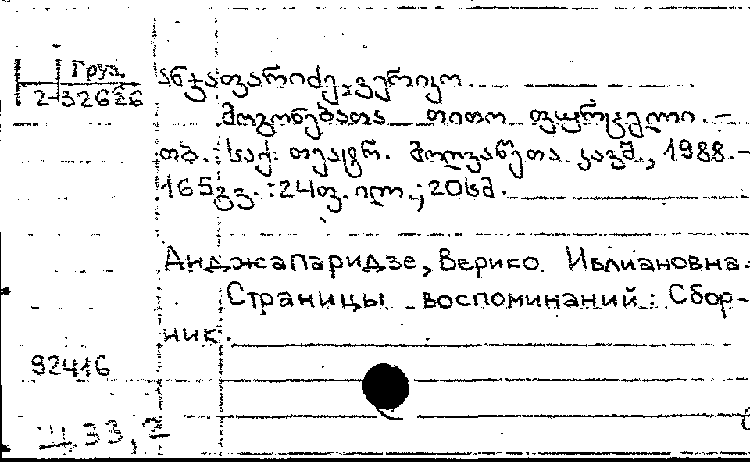 Груз.
2-32626
ანჯაფარიძე, ვერიკო
მოგონებათა თითო ფურცელი. –
თბ.: საქ. თეატრ. მოღვაწეთა კავშ., 1988. –
165გვ.: 24ფ. ილ.; 20სმ.
Анджапаридзе, Верико Ивлиановна.
Страницы воспоминаний: Сбор-
ник.
92416
Щ33,2